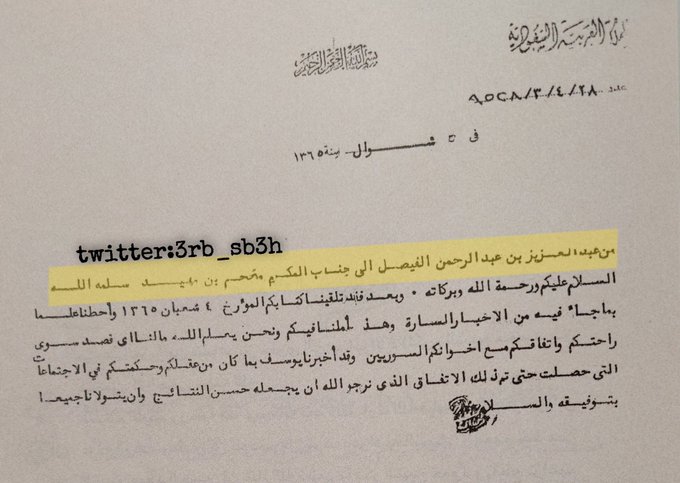 المملكة العربية السعودية
بسم الله الرحمن الرحيم
عدد ٢٨/٤/٣/
في شوال سنة ١٣٦٥
twitter:3rb_sb3h
من عبد العزيز بن عبد الرحمن الفيصل الى جناب المكرم بن مهيد سلمه الله
السلام عليكم ورحمة الله وبركاته ٠ وبعد فقد تلقينا كتابكم المؤرخ ٤ شعبان ١٣٦٥ وأحطنا علما
بما جاء فيه من الاخبار السارة وهذ أملنا فيكم ونحن يعلم الله مالنا اى قصد سوى
راحتكم واتفاقكم مع اخوانكم السوريين وقد أخبرنا يوسف بما كان من عقلكم وحكمتكم في الاجتماعات
التى حصلت حتى تم ذلك الاتفاق الذى نرجو الله ان يجعله حسن النتائج وان يتولانا جميعا
بتوفيقه والسلام